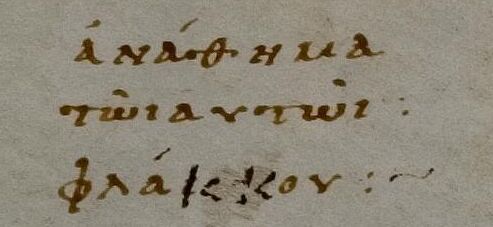 ἀνάθημα
τῶι αυτῶι :
φλάκκου :~